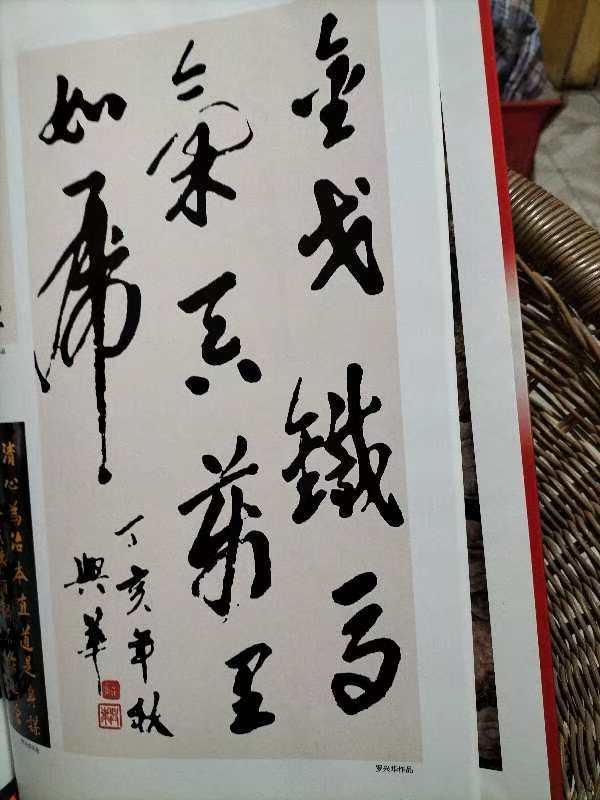 金戈鐵馬
氣吞萬里
如虎
丁亥年秋
興華
罗兴华作品
清心為治本直道是身謀